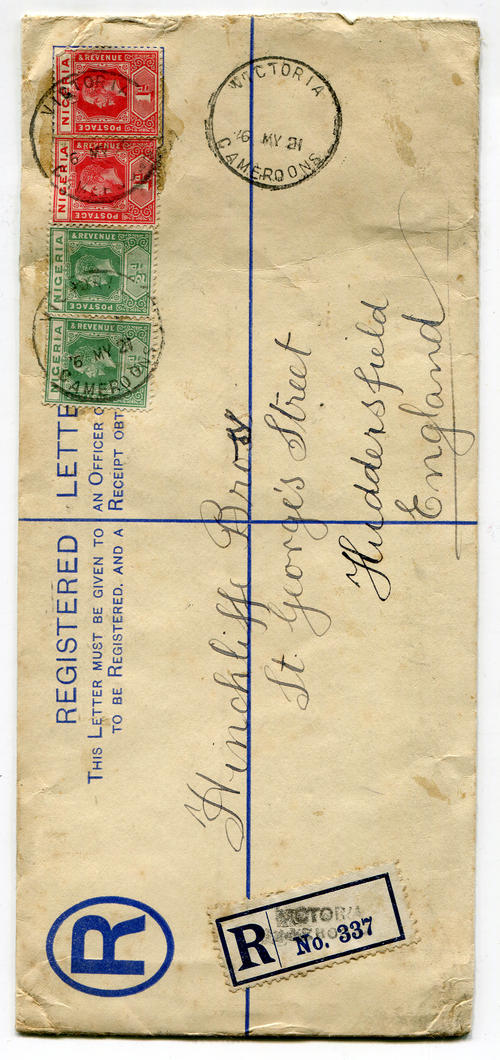 NIGERIA
& REVENUE
POSTAGE
1D
NIGERIA
& REVENUE
POSTAGE
NIGERIA
& REVENUE
POSTAGE
½D
NIGERIA
& REVENUE
POSTAGE
VICTORIA
6 MY
6 MY 21
CAMEROONS
VICTORIA
6 MY 21
CAMEROONS
REGISTERED LETTE
THIS LETTER MUST BE GIVEN TO AN OFFICER O
TO BE REGISTERED, AND A RECEIPT OBT
Hinchliffe Bros
St. George's Street
Huddersfield
England
R
R
VICTORIA
No. 337